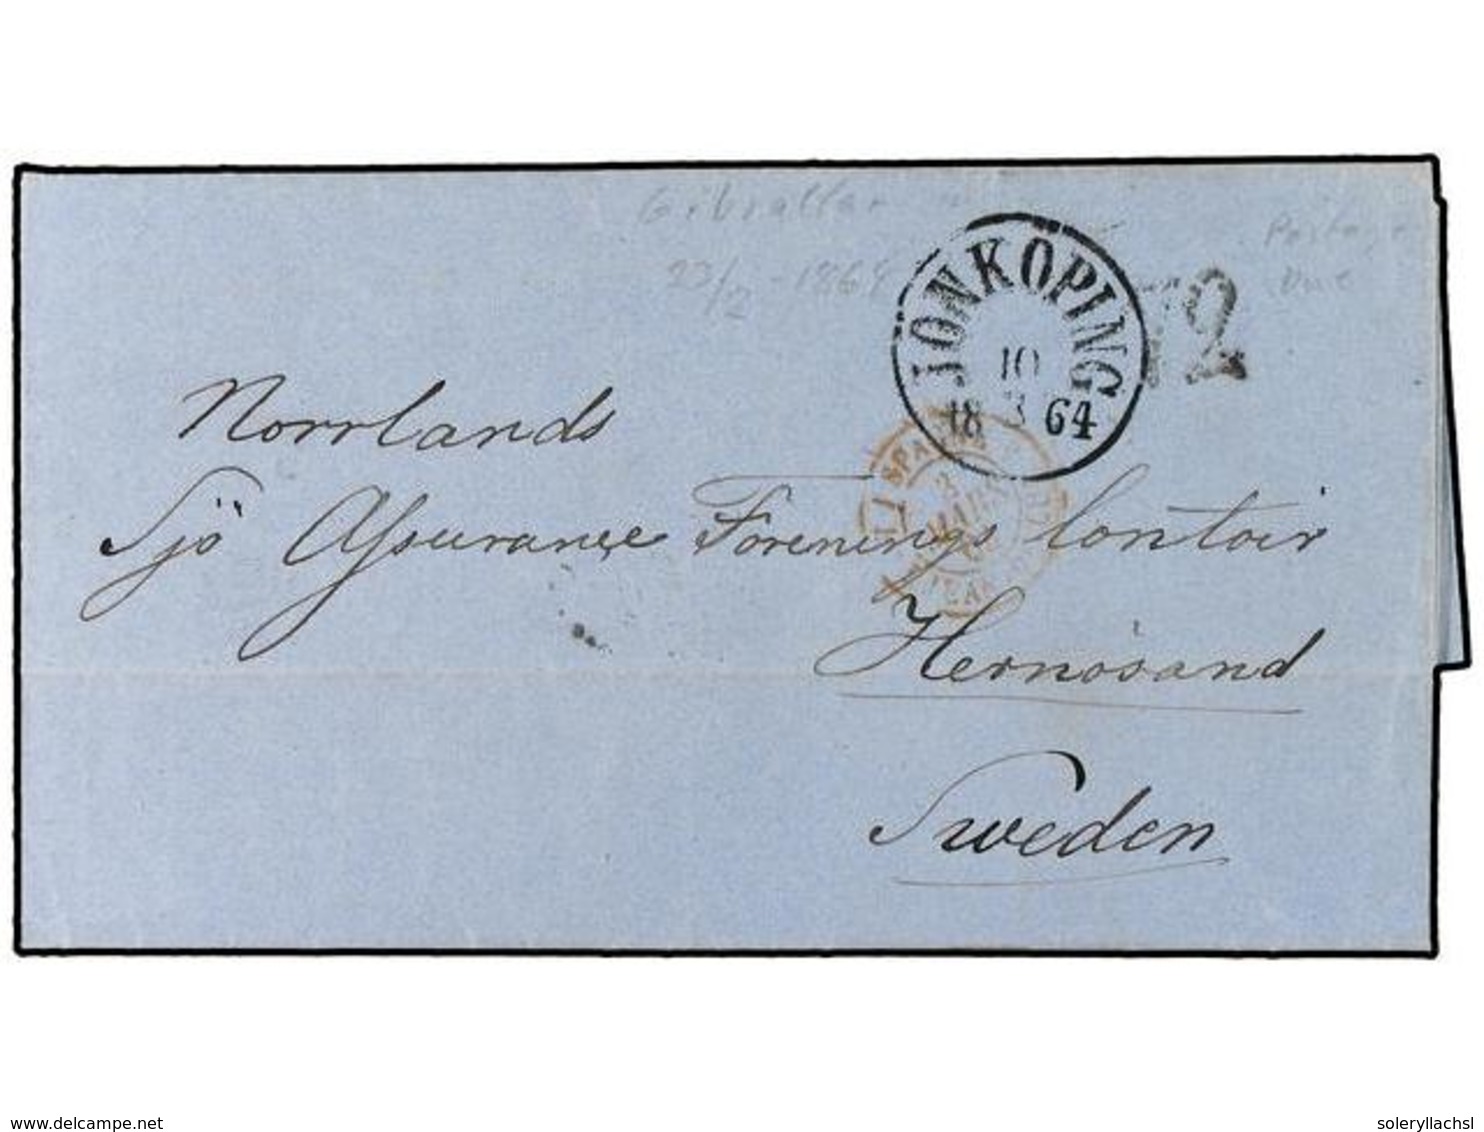 Gibraltar
23/2 - 1864
Postage
Due
JÖNKÖPING
10
18 3 64
72
Norrlands
Sjö Assurance Forenings Contoir
Hernösand
Sweden
delcampe.net
soleryllachsl